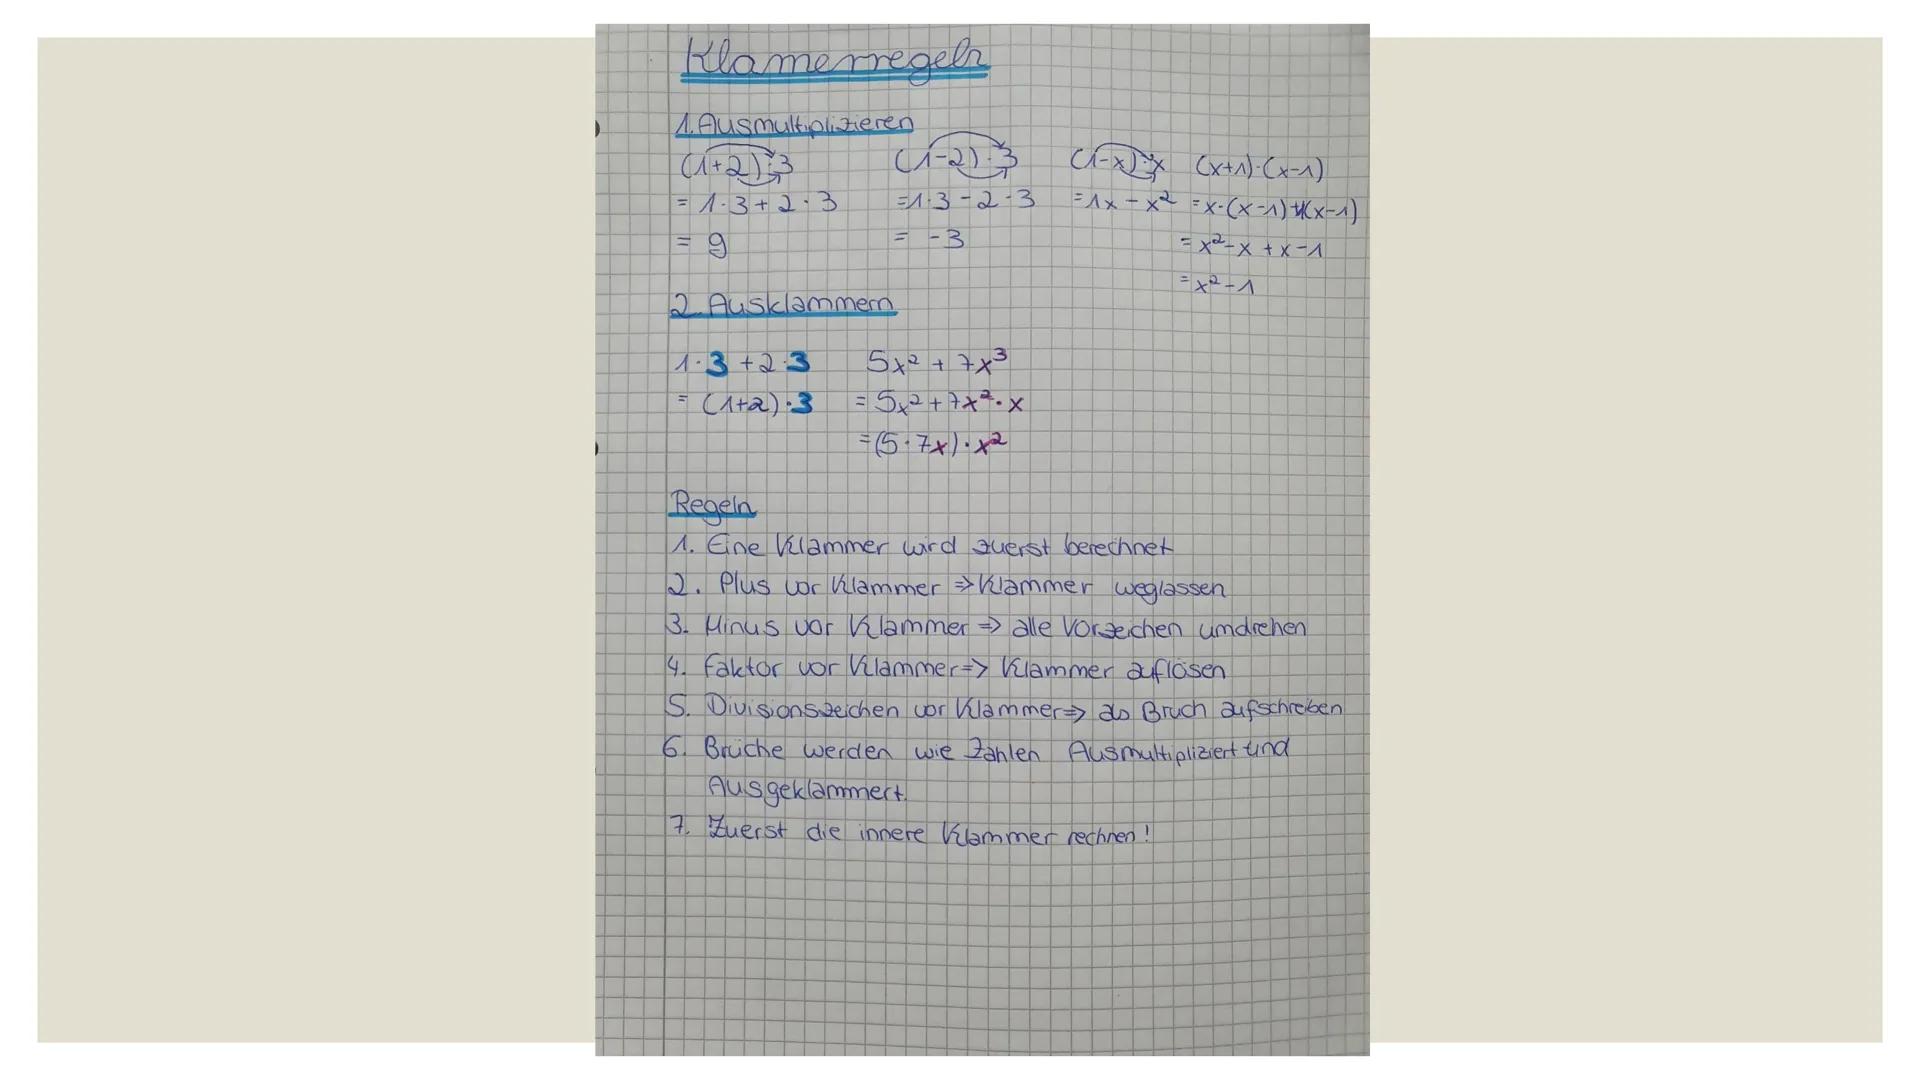 Klamerregeln
1. Ausmultiplizieren
(1+2)·3 (1-2)·3 (1-x)·x (x+1)·(x-1)
= 1·3+2·3 =1·3-2·3 =1x-x² =x·(x-1)+1(x-1)
= 9 = -3 =x²-x+x-1
=x²-1
2. Ausklammern
1·3+2·3 5x²+7x³
= (1+2)·3 =5x²+7x²·x
=(5·7x)·x²
Regeln
1. Eine Klammer wird zuerst berechnet
2. Plus vor Klammer => Klammer weglassen
3. Minus vor Klammer => alle Vorzeichen umdrehen
4. Faktor vor Klammer => Klammer auflösen
5. Divisionszeichen vor Klammer => als Bruch aufschreiben
6. Brüche werden wie Zahlen Ausmultipliziert und
Ausgeklammert.
7. Zuerst die innere Klammer rechnen!